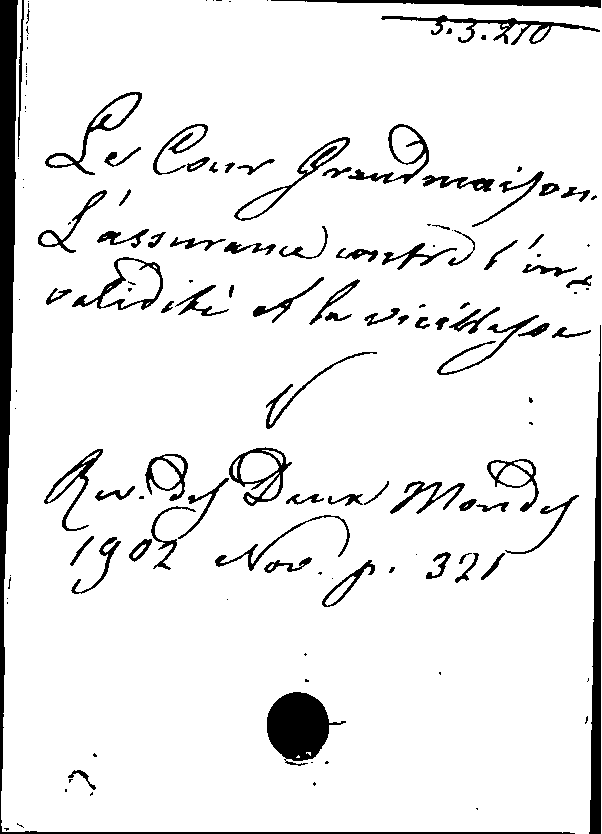 3.3.210
Le Cour Grandmaison.
L'assurance contre l'in-
validité et la vieillesse
Rev. des Deux Mondes
1902 Nov. p. 321